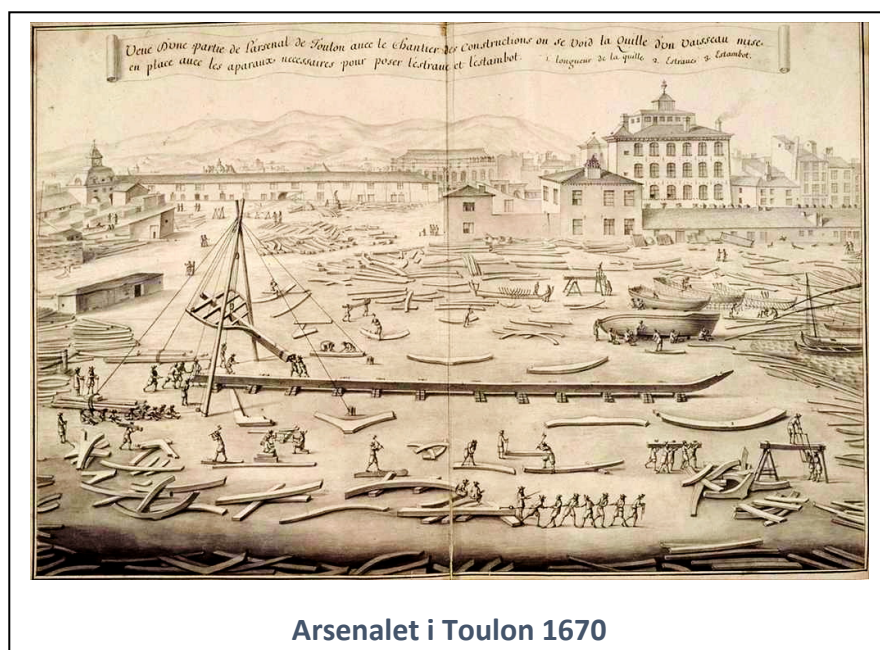 Veue D'une partie de l'arsenal de Toulon avec le Chantier des Constructions ou se Void la Quille d'un Vaisseau mise
en place avec les aparaux necessaires pour poser l'estrave et l'estambot. 1 longueur de la quille 2. Estrave. 3. Estambot.
Arsenalet i Toulon 1670